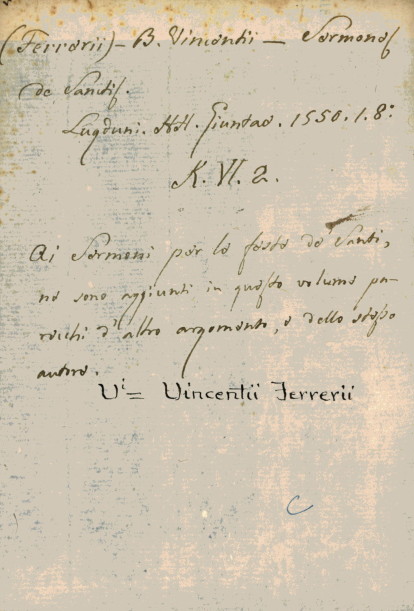 (Ferrerii) - B. Vincentii — Sermones
de Sanctis.
Lugduni. Her. Giuntae. 1550. 1. 8º
K. VI. 2.
Ai Sermoni per le feste de' Santi,
ne sono aggiunti in questo volume pa-
recchi d'altro argomento, e dello stesso
autore.
Vi= Vincentii Ferrerii
C